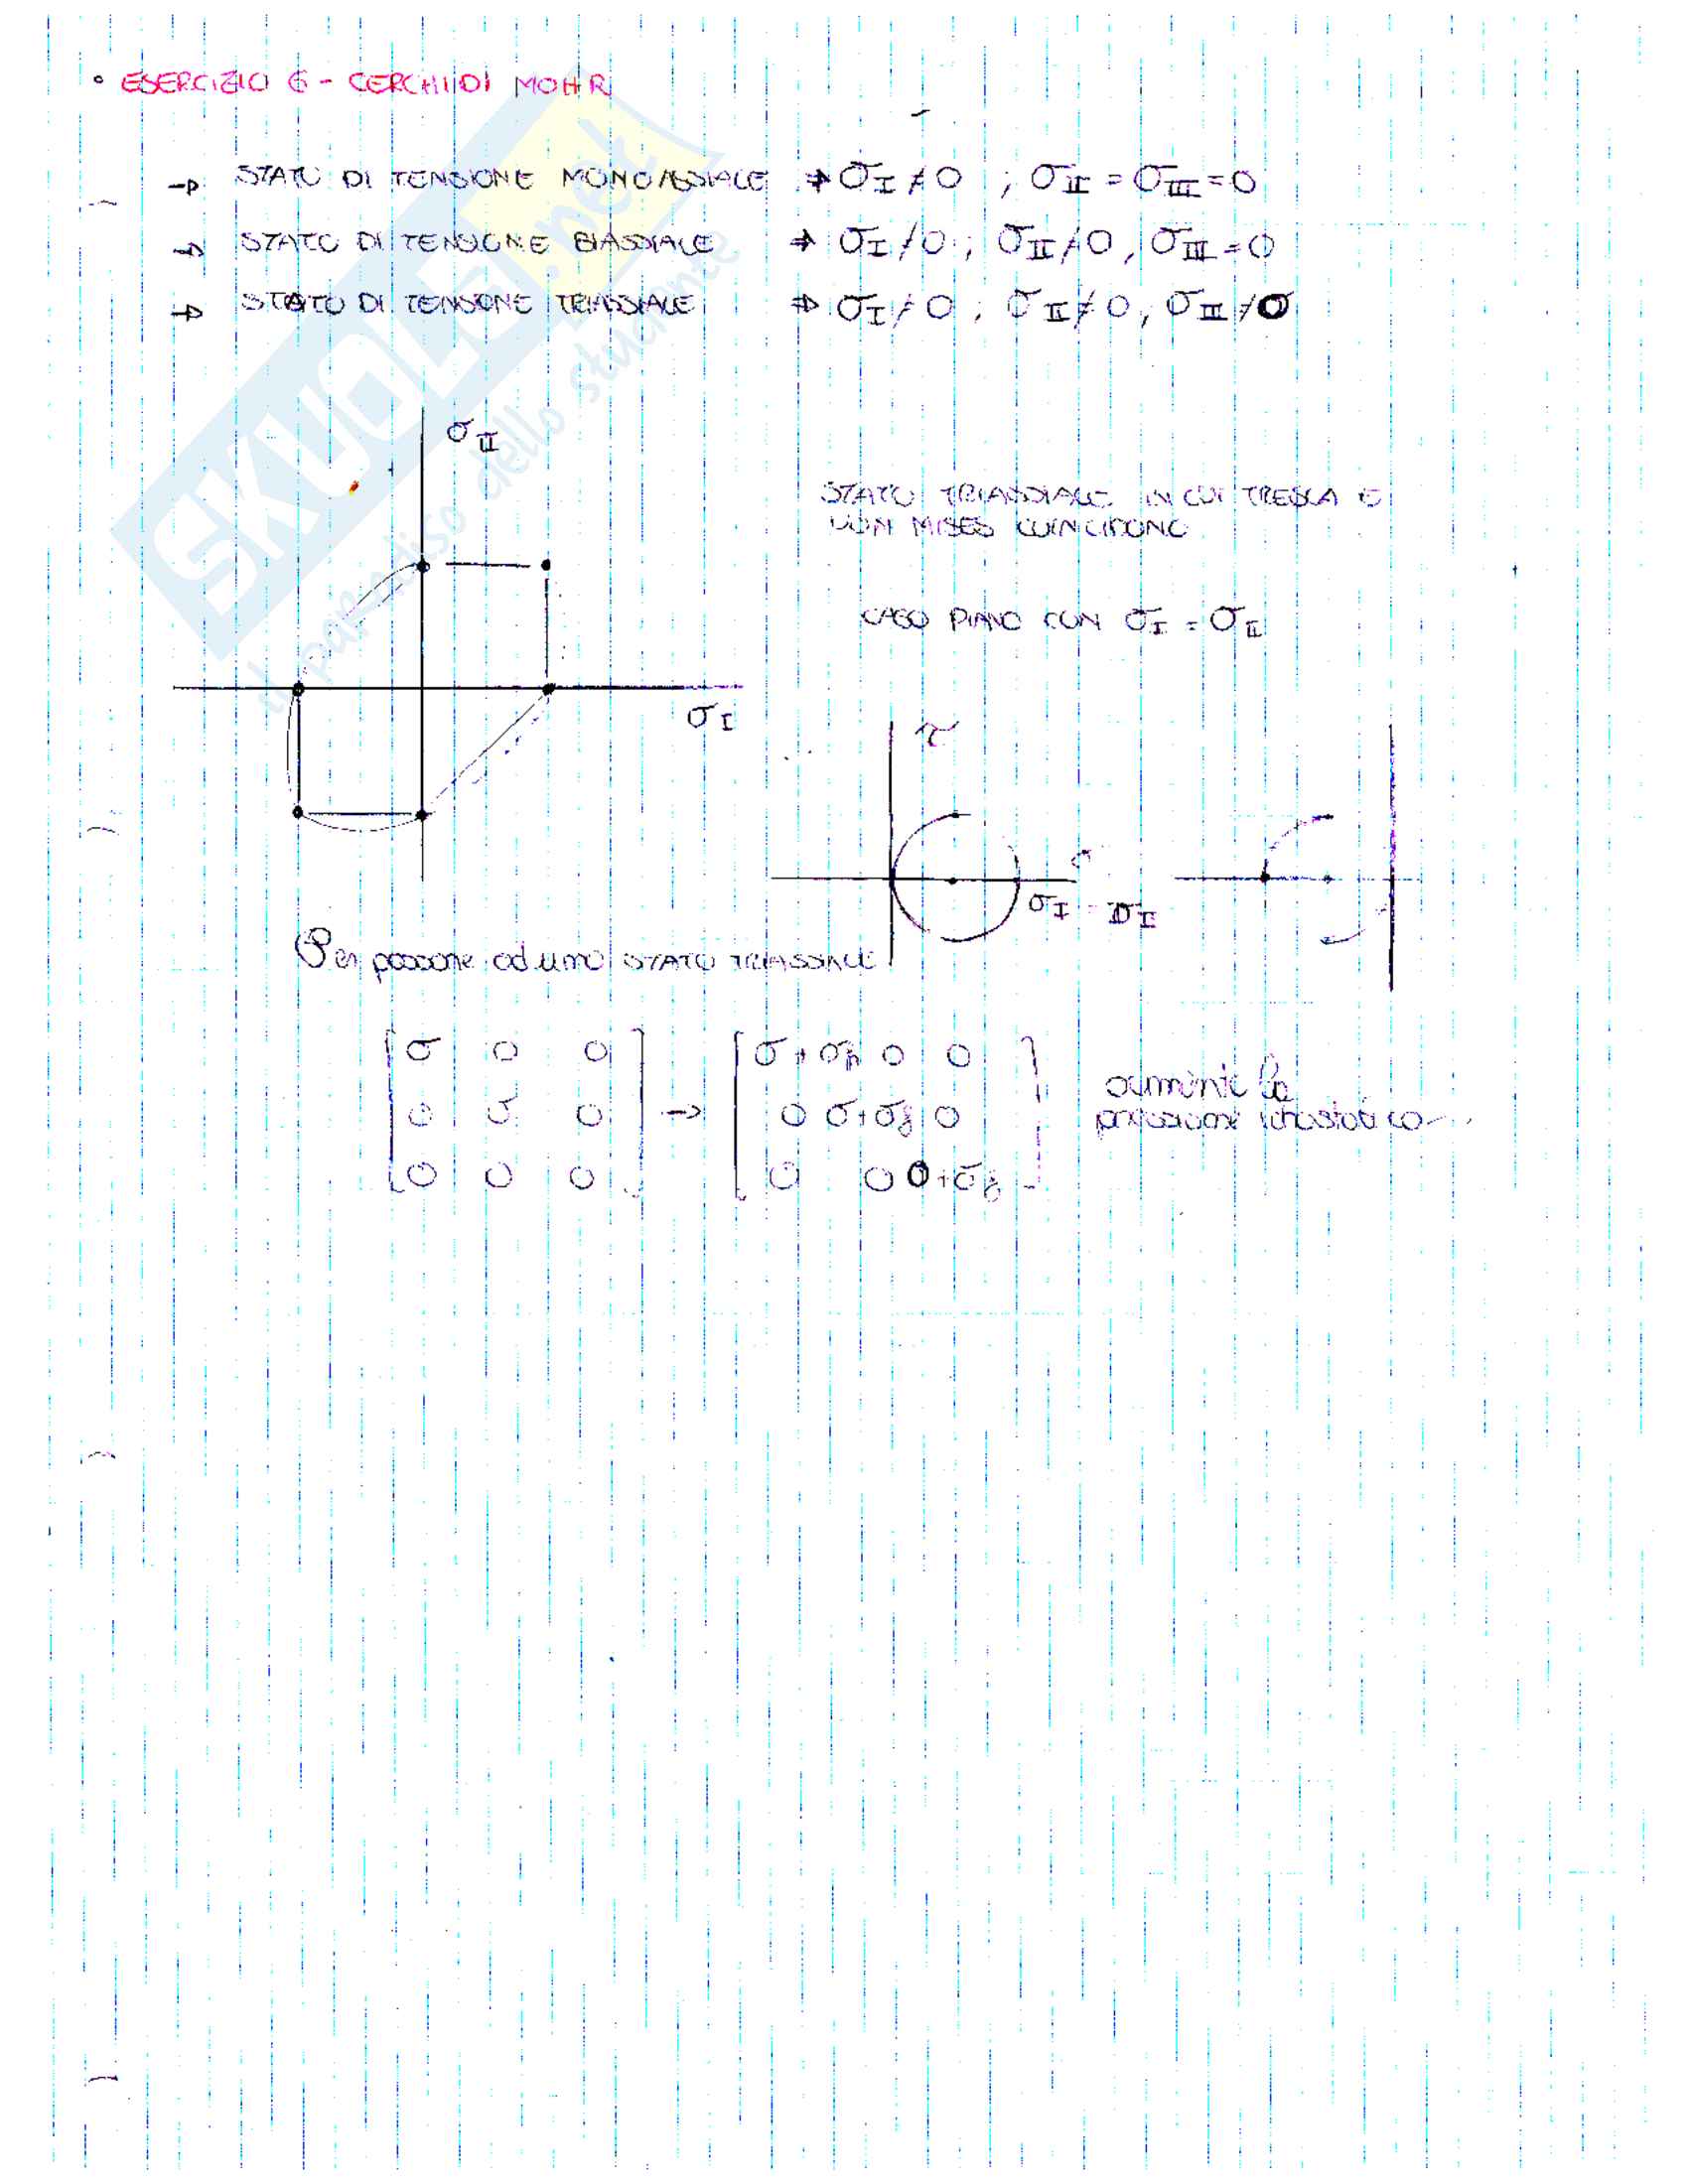 ° ESERCIZIO 6 - CERCHI DI MOHR
→ STATO DI TENSIONE MONOASSIALE ⇒ σI ≠ 0 ; σII = σIII = 0
→ STATO DI TENSIONE BIASSIALE ⇒ σI ≠ 0 ; σII ≠ 0 , σIII = 0
→ STATO DI TENSIONE TRIASSIALE ⇒ σI ≠ 0 ; σII ≠ 0 , σIII ≠ 0
SKUOLA.net
il paradiso dello studente
σII
STATO TRIASSIALE IN CUI TRESCA E
VON MISES COINCIDONO
CASO PIANO CON σI = σII
σI
τ
σ
σI = σII
Per passare ad uno STATO TRIASSIALE
[ σ 0 0 ] → [ σ + σh 0 0 ]
[ 0 σ 0 ] [ 0 σ+σh 0 ]
[ 0 0 0 ] [ 0 0 0+σh ]
aumenta la
pressione idrostatica